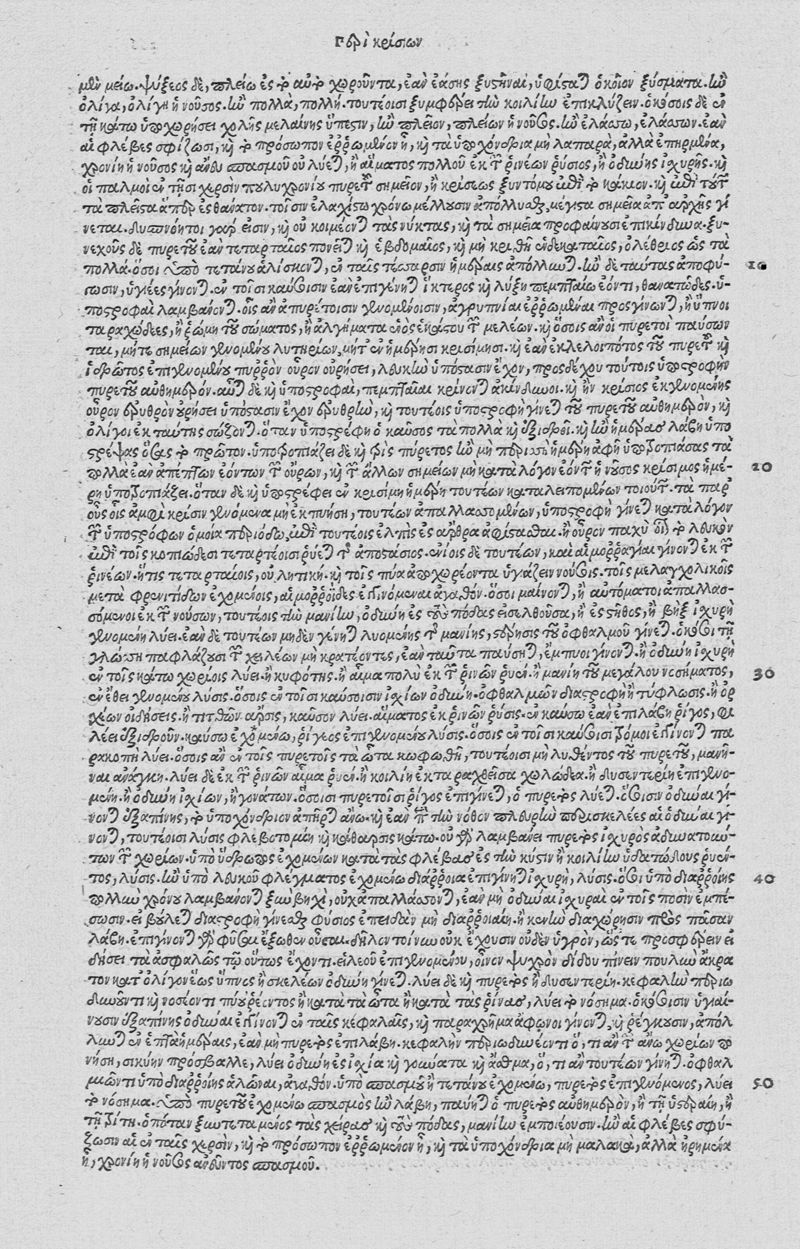 Περὶ κρίσιων
μὲν μείω. ψύξεος δὲ, πλείω ἐς τὸ αὐτὸ χωροῦντα, ἐὰν ἐάσῃς ξυστῆναι, ὑφίσταται ὁκοῖον ξύσματα. ἢν
ὀλίγα, ὀλίγη ἡ νοῦσος. ἢν πολλὰ, πολλή. τουτέοισι ξυμφέρει τὴν κοιλίην ἐπικλύζειν. ὁκόσοις δὲ ἐν
τῇ κάτω ὑποχωρήσει χολῆς μελαίνης ὕπεστιν, ἢν πλεῖον, πλείων ἡ νοῦσος. ἢν ἔλασσον, ἐλάσσων. ἐὰν
αἱ φλέβες σφύζωσι, καὶ τὸ πρόσωπον ἐρρωμένον ᾖ, καὶ τὰ ὑποχόνδρια μὴ λαπαρὰ, ἀλλὰ ἐπηρμένα,
χρονίη ἡ νοῦσος καὶ ἄνευ σπασμοῦ οὐ λύεται, ἢ αἵματος πολλοῦ ἐκ τῶν ῥινέων ῥύσιος, ἢ ὀδύνης ἰσχυρῆς. καὶ
οἱ παλμοὶ ἐν τῇσι χερσὶν πουλυχρονίου πυρετοῦ σημεῖον, ἢ κρίσεως ξυντόμου ἐπὶ τὸ κάκιον. καὶ ἐπὶ τούτων
τὰ πλεῖστα ἀπὸ ἐς θάνατον. τοῖσιν ἐλαχίστῳ χρόνῳ μέλλουσιν ἀπόλλυσθαι, μέγιστα σημεῖα ἀπ' ἀρχῆς γί
νεται. δυσπνόητοι γάρ εἰσιν, καὶ οὐ κοιμῶνται τὰς νύκτας, καὶ τὰ σημεῖα προφαίνουσι ἐπικίνδυνα. ξυ-
νεχοῦς δὲ πυρετοῦ ἐὰν τεταρταῖος πονεῖται καὶ ἑβδομαῖος, καὶ μὴ κριθῇ ἑνδεκαταῖος, ὀλέθριος ὡς τὰ
πολλά. ὅσοι ὑπὸ τετάνου ἁλίσκονται, ἐν ταῖς τέσσαρσιν ἡμέραις ἀπόλλυνται. ἢν δὲ ταύτας ἀποφύ- 10
γωσιν, ὑγιέες γίνονται. ἐν τοῖσι καύσοισιν ἐὰν ἐπιγένηται ἴκτερος καὶ λὺγξ πεμπταίῳ ἐόντι, θανατῶδες. ὑ-
ποστροφαὶ λαμβάνονται. οἷς ἂν ἀπυρέτοισιν γινομένοισιν, ἀγρυπνίαι ἐρρωμέναι προσγίνονται, ἢ ὕπνοι
ταραχώδεες, ἢ ἐρρωμένου σώματος, ἢ ἀλγήματα ἑνὸς ἑκάστου τῶν μελέων. καὶ ὅσοις ἂν οἱ πυρετοὶ παύσων
ται, μήτε σημείων γινομένων λυτηρίων, μήτ' ἐν ἡμέρῃσι κρισίμῃσι. καὶ ἐὰν ἐκλελοιπότος τοῦ πυρετοῦ καὶ
ἱδρῶτος ἐπιγινομένου πυρρὸν οὖρον οὐρήσει, λευκὴν ὑπόστασιν ἔχον, προσδέχου τούτοις ὑποστροφὴν
πυρετοῦ αὐθημερόν. αὗται δὲ καὶ ὑποστροφαὶ, πεμπταῖαι κρίνονται ἀκίνδυνοι. καὶ ἢν κρίσιος ἐκγινομένης
οὖρον ἐρυθρὸν οὐρήσει ὑπόστασιν ἔχον ἐρυθρὴν, καὶ τουτέοις ὑποστροφὴ γίνεται τοῦ πυρετοῦ αὐθημερὸν, καὶ
ὀλίγοι ἐκ ταύτης σώζονται. ὅταν ὑποστρέφῃ ὁ καῦσος τὰ πολλὰ καὶ ἐξιδροῖ. καὶ ἢν ἡμέρας λάβῃ ὑπο
στρέψας ὅσας τὸ πρῶτον. ὑποστροπιάζει δὲ καὶ τρὶς πύρετος ἢν μὴ περισσῇ ἡμέρῃ ἀφῇ ὑποτροπιάσας τὰ
πολλὰ ἐὰν ἀπέπτων ἐόντων τῶν οὔρων, καὶ τῶν ἄλλων σημείων μὴ κατὰ λόγον ἐόντων ἡ νοῦσος κρίσιμος ἡμέ- 20
ρη ὑποτροπιάζει. ὅταν δὲ καὶ ὑποστρέφει ἐν κρισίμῃ ἡμέρῃ τουτέων καταλειπομένων τοιούτων. τὰ παρ'
οὖς οἷς ἀμφὶ κρίσιν γινόμενα μὴ ἐκπυήσῃ, τουτέων ἀπαλλασσομένων, ὑποστροφὴ γίνεται κατὰ λόγον
τῶν ὑποστρόφων ὁμοία περιόδῳ, ἐπὶ τουτέοις ἐλπὶς ἐς ἄρθρα ἀφίστασθαι. ἢ οὖρον παχὺ οἷον τὸ λευκὸν
ἐπὶ τοῖς κοπιώδεσι τεταρτέοισι ῥύεται τῆς ἀποστάσιος. ἐνίοις δὲ τουτέων, καὶ αἱμορραγίαι γίνονται ἐκ τῶν
ῥινέων. ἥτις τεταρταίοις, οὐ ληπτική. καὶ τοῖς πύα ἀποχωρέοντα ὑγιάζει νούσοις. τοῖς μελαγχολικοῖς
μετὰ φρενιτίδων ἐχομένοις, αἱμορροΐδες ἐπιγινόμεναι ἀγαθόν. ὅσοι μαίνονται, ἢ αὐτόματοι ἀπαλλασ-
σόμενοι ἐκ τῶν νούσων, τουτέοις τὴν μανίην, ὀδύνη ἐς τοὺς πόδας εἰσελθοῦσα, ἢ ἐς στῆθος, ἢ βὴξ ἰσχυρὴ
γινομένη λύει. ἐὰν δὲ τουτέων μηδὲν γένηται λυομένης τῆς μανίης, στέρησις τοῦ ὀφθαλμοῦ γίνεται. ὁκόσοι τῇ
γλώσσῃ παφλάζουσι τῶν χειλέων μὴ κρατέοντες, ἐὰν ταῦτα παύσηται, ἔμπυοι γίνονται. ἢ ὀδύνη ἰσχυρὴ
ἐν τοῖς κάτω χωρίοις λύει. ἢ κωφότης. ἢ αἷμα πολὺ ἐκ τῶν ῥινῶν ῥυῇ. ἢ μανίη τοῦ μεγάλου νοσήματος, 30
ἐν ἔθει γινομένου λύσις. ὅσοις ἐν τοῖσι καύσοισιν ἰσχίων ὀδύνη. ὀφθαλμῶν διαστροφὴ ἢ τύφλωσις. ἢ ὀρ
χίων οἰδήσεις. ἢ τιτθῶν ἄρσις, καῦσον λύει. αἵματος ἐκ ῥινῶν ῥύσις. ἐν καύσῳ ἐὰν ἐπιλάβῃ ῥῖγος, φι
λέει ἐξιδροῦν. καύσῳ ἐχομένῳ, ῥίγεος ἐπιγινομένου λύσις. ὅσοις ἐν τοῖσι καύσοισι τρόμοι ἐπιγίνονται πα
ρακοπὴ λύει. ὅσοις ἂν ἐν τοῖς πυρετοῖς τὰ ὦτα κωφωθῇ, τουτέοισι μὴ λυθέντος τοῦ πυρετοῦ, μανῆ-
ναι ἀνάγκη. λύει δὲ ἐκ τῶν ῥινῶν αἷμα ῥυέν. ἢ κοιλίη ἐκταραχθεῖσα χολώδεα. ἢ δυσεντερίη ἐπιγινο-
μένη. ἢ ὀδύνη ἰσχίων, ἢ γονάτων. ὅσοισι πυρετοῖσι ῥῖγος ἐπιγίνεται, ὁ πυρετὸς λύεται. ὅσοισιν ὀδύναι γί-
νονται ἐξαπίνης, τὸ ὑποχόνδριον ἀπῆρται ἄνω. καὶ ἐὰν κατὰ τὴν νόθον πλευρὴν περὶ σκελέας αἱ ὀδύναι γί-
νονται, τουτέοισι λύσις φλεβοτομίη καὶ κάθαρσις κάτω. οὐ γὰρ λαμβάνει πυρετὸς ἰσχυρὸς ἀδυνάτου ἐόν-
των τῶν χωρίων. ὑπὸ ὕδρωπος ἐχομένων κατὰ τὰς φλέβας ἐς τὴν κύστιν ἢ κοιλίην ὑδατώδους ῥυέν-
τος, λύσις. ἢν ὑπὸ λευκοῦ φλέγματος ἐχομένῳ διάρροια ἐπιγίνηται ἰσχυρὴ, λύσις. ὅσοι ὑπὸ διαρροίης 40
πολλὸν χρόνον λαμβάνονται ξὺν βηχὶ, οὐκ ἀπαλλάσσονται, ἐὰν μὴ ὀδύναι ἰσχυραὶ ἐν τοῖς ποσὶν ἐμπέ-
σωσιν. εἰ βούλεται διαστροφὴ γίνεσθαι φύσιος ἐπειδὰν μὴ διαρροίαιη. ἢ κενὴν διαχώρησιν πρὸς πᾶσαν
λάβῃ. ἐπιγίνονται γὰρ φῦσαι ἔξωθεν οὖσαι. δῆλον τοίνυν οὐκ ἔχουσιν οὐδὲν ὑγρὸν, ὥστε προσφέρειν εἰ
δήσει τὰ ἀσφαλῶς τῷ οὕτως ἔχοντι. εἰλεοῦ ἐπιγινομένου, οἶνον ψυχρὸν δίδου πίνειν πουλὺν ἄκρα
τον κατ' ὀλίγον ἕως ὕπνος ἢ σκελέων ὀδύνη γίνεται. λύει δὲ καὶ πυρετὸς ἢ δυσεντερίη. κεφαλὴν περιω
δυνῶντι καὶ νοσέοντι πύου ῥέοντος ἢ κατὰ τὰ ὦτα ἢ κατὰ τὰς ῥῖνας, λύει τὸ νόσημα. ὁκόσοισιν ὑγιαί-
νουσιν ἐξαπίνης ὀδύναι ἐπιγίνονται ἐν ταῖς κεφαλαῖς, καὶ παραχρῆμα ἄφωνοι γίνονται, καὶ ῥέγκουσιν, ἀπόλ
λυνται ἐν ἑπτὰ ἡμέραις, ἐὰν μὴ πυρετὸς ἐπιλάβῃ. κεφαλὴν περιωδυνέοντι ὅ, τι ἂν τῶν ἄνω χωρίων πο
νήσῃ, σικύην πρόσβαλλε, λύει ὀδύνη ἐς ἰσχία καὶ γούνατα καὶ ἆσθμα, ὅ, τι ἂν τουτέων γίνηται. ὀφθαλ
μιῶντι ὑπὸ διαρροίης ἁλῶναι, ἀγαθόν. ὑπὸ σπασμοῦ ἢ τετάνου ἐχομένῳ, πυρετὸς ἐπιγινόμενος, λύει 50
τὸ νόσημα. ὑπὸ πυρετοῦ ἐχομένῳ σπασμὸς ἢν λάβῃ, παύεται ὁ πυρετὸς αὐθημερὸν, ἢ τῇ ὑστεραίῃ, ἢ
τῇ τρίτῃ. ὁπόταν ξυντεταμένος τὰς χεῖρας καὶ τοὺς πόδας, μανίην ἐμποιέουσιν. ἢν αἱ φλέβες σφύ-
ζωσιν αἱ ἐν ταῖς χερσὶν, καὶ τὸ πρόσωπον ἐρρωμένον ᾖ, καὶ τὰ ὑποχόνδρια μὴ μαλακὰ, ἀλλὰ ἠρμένα
ᾖ, χρονίη ἡ νοῦσος ἄνευ ἐόντος σπασμοῦ.